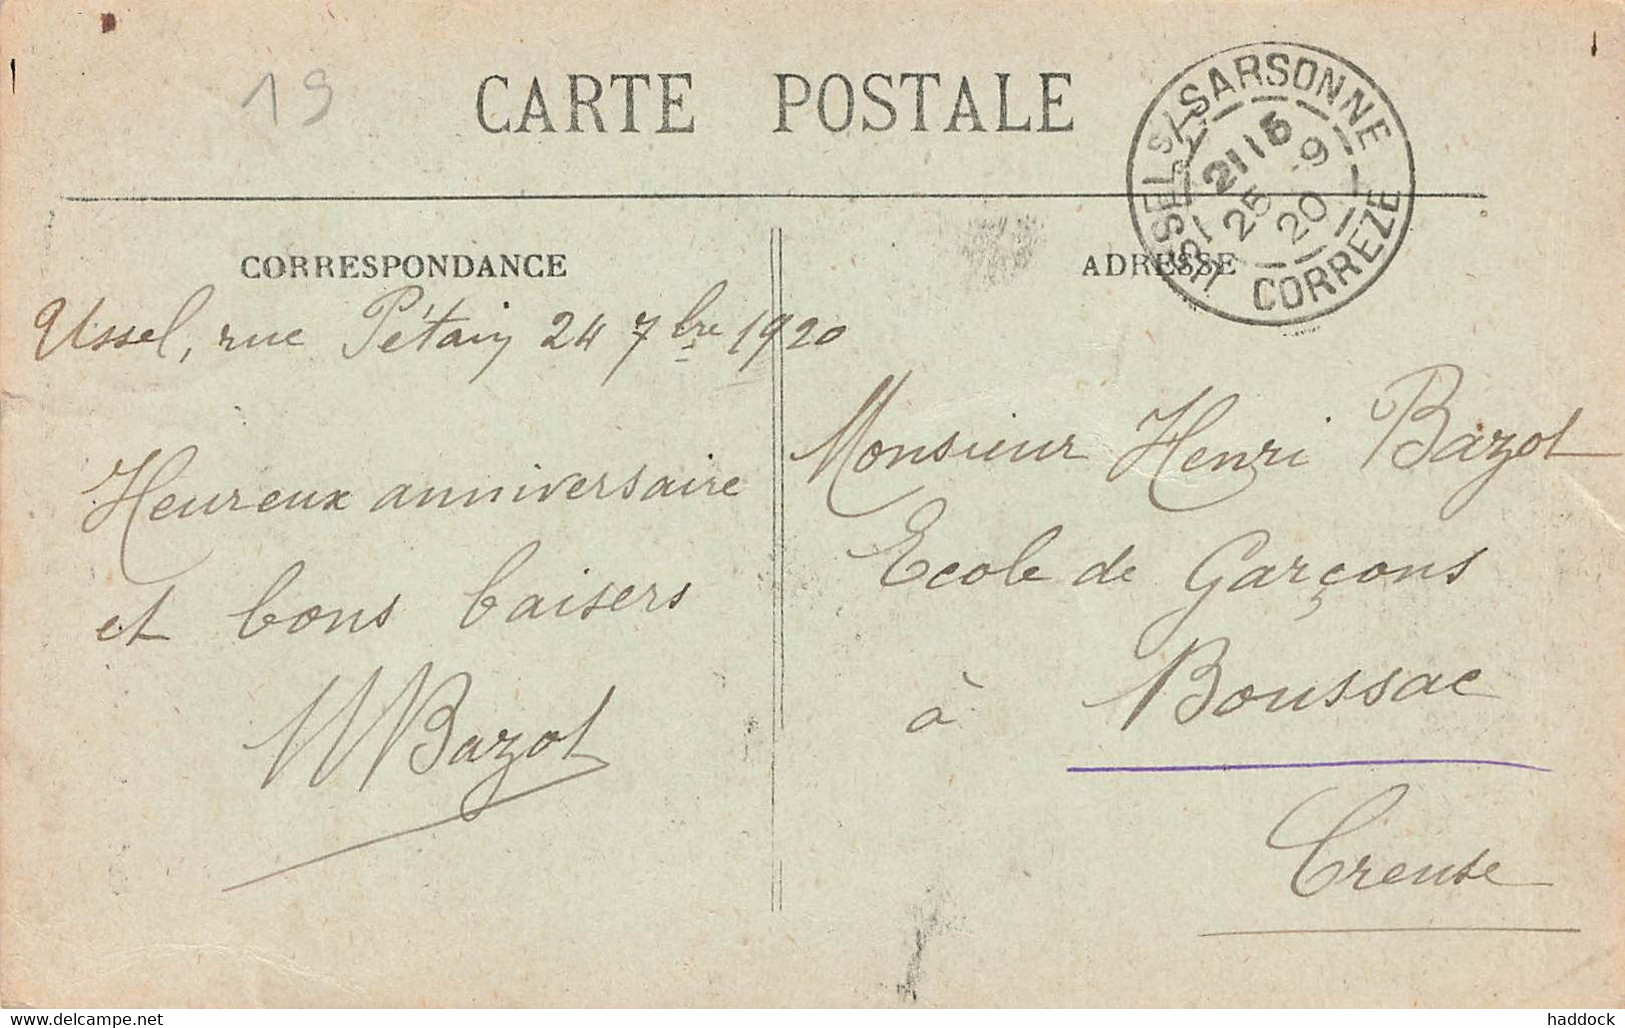 19
CARTE POSTALE
USSEL S/SARSONNE
21 15
25 - 9
20
CORREZE
CORRESPONDANCE
ADRESSE
Ussel, rue Pétain 24 7bre 1920
Heureux anniversaire
et bons baisers
Bazot
Monsieur Henri Bazot
Ecole de Garçons
à Boussac
Creuse
delcampe.net
haddock